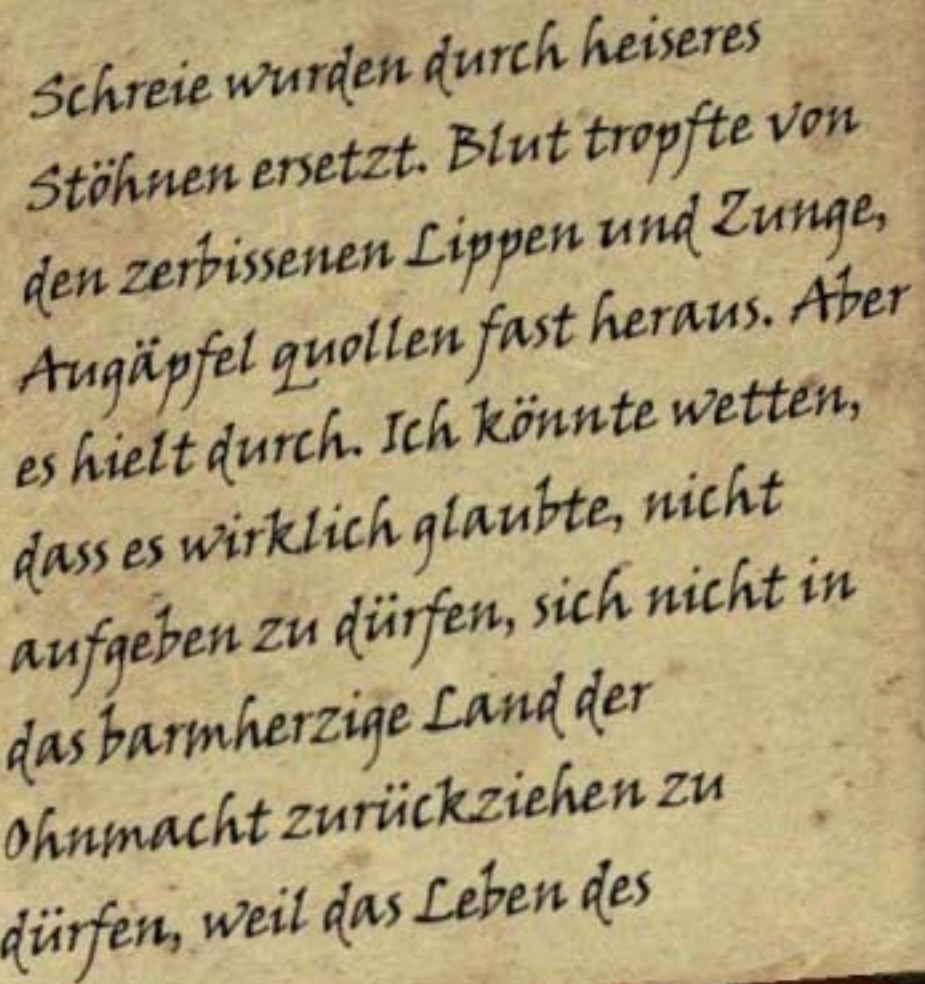 Schreie wurden durch heiseres
Stöhnen ersetzt. Blut tropfte von
den zerbissenen Lippen und Zunge,
Augäpfel quollen fast heraus. Aber
es hielt durch. Ich könnte wetten,
dass es wirklich glaubte, nicht
aufgeben zu dürfen, sich nicht in
das barmherzige Land der
Ohnmacht zurückziehen zu
dürfen, weil das Leben des